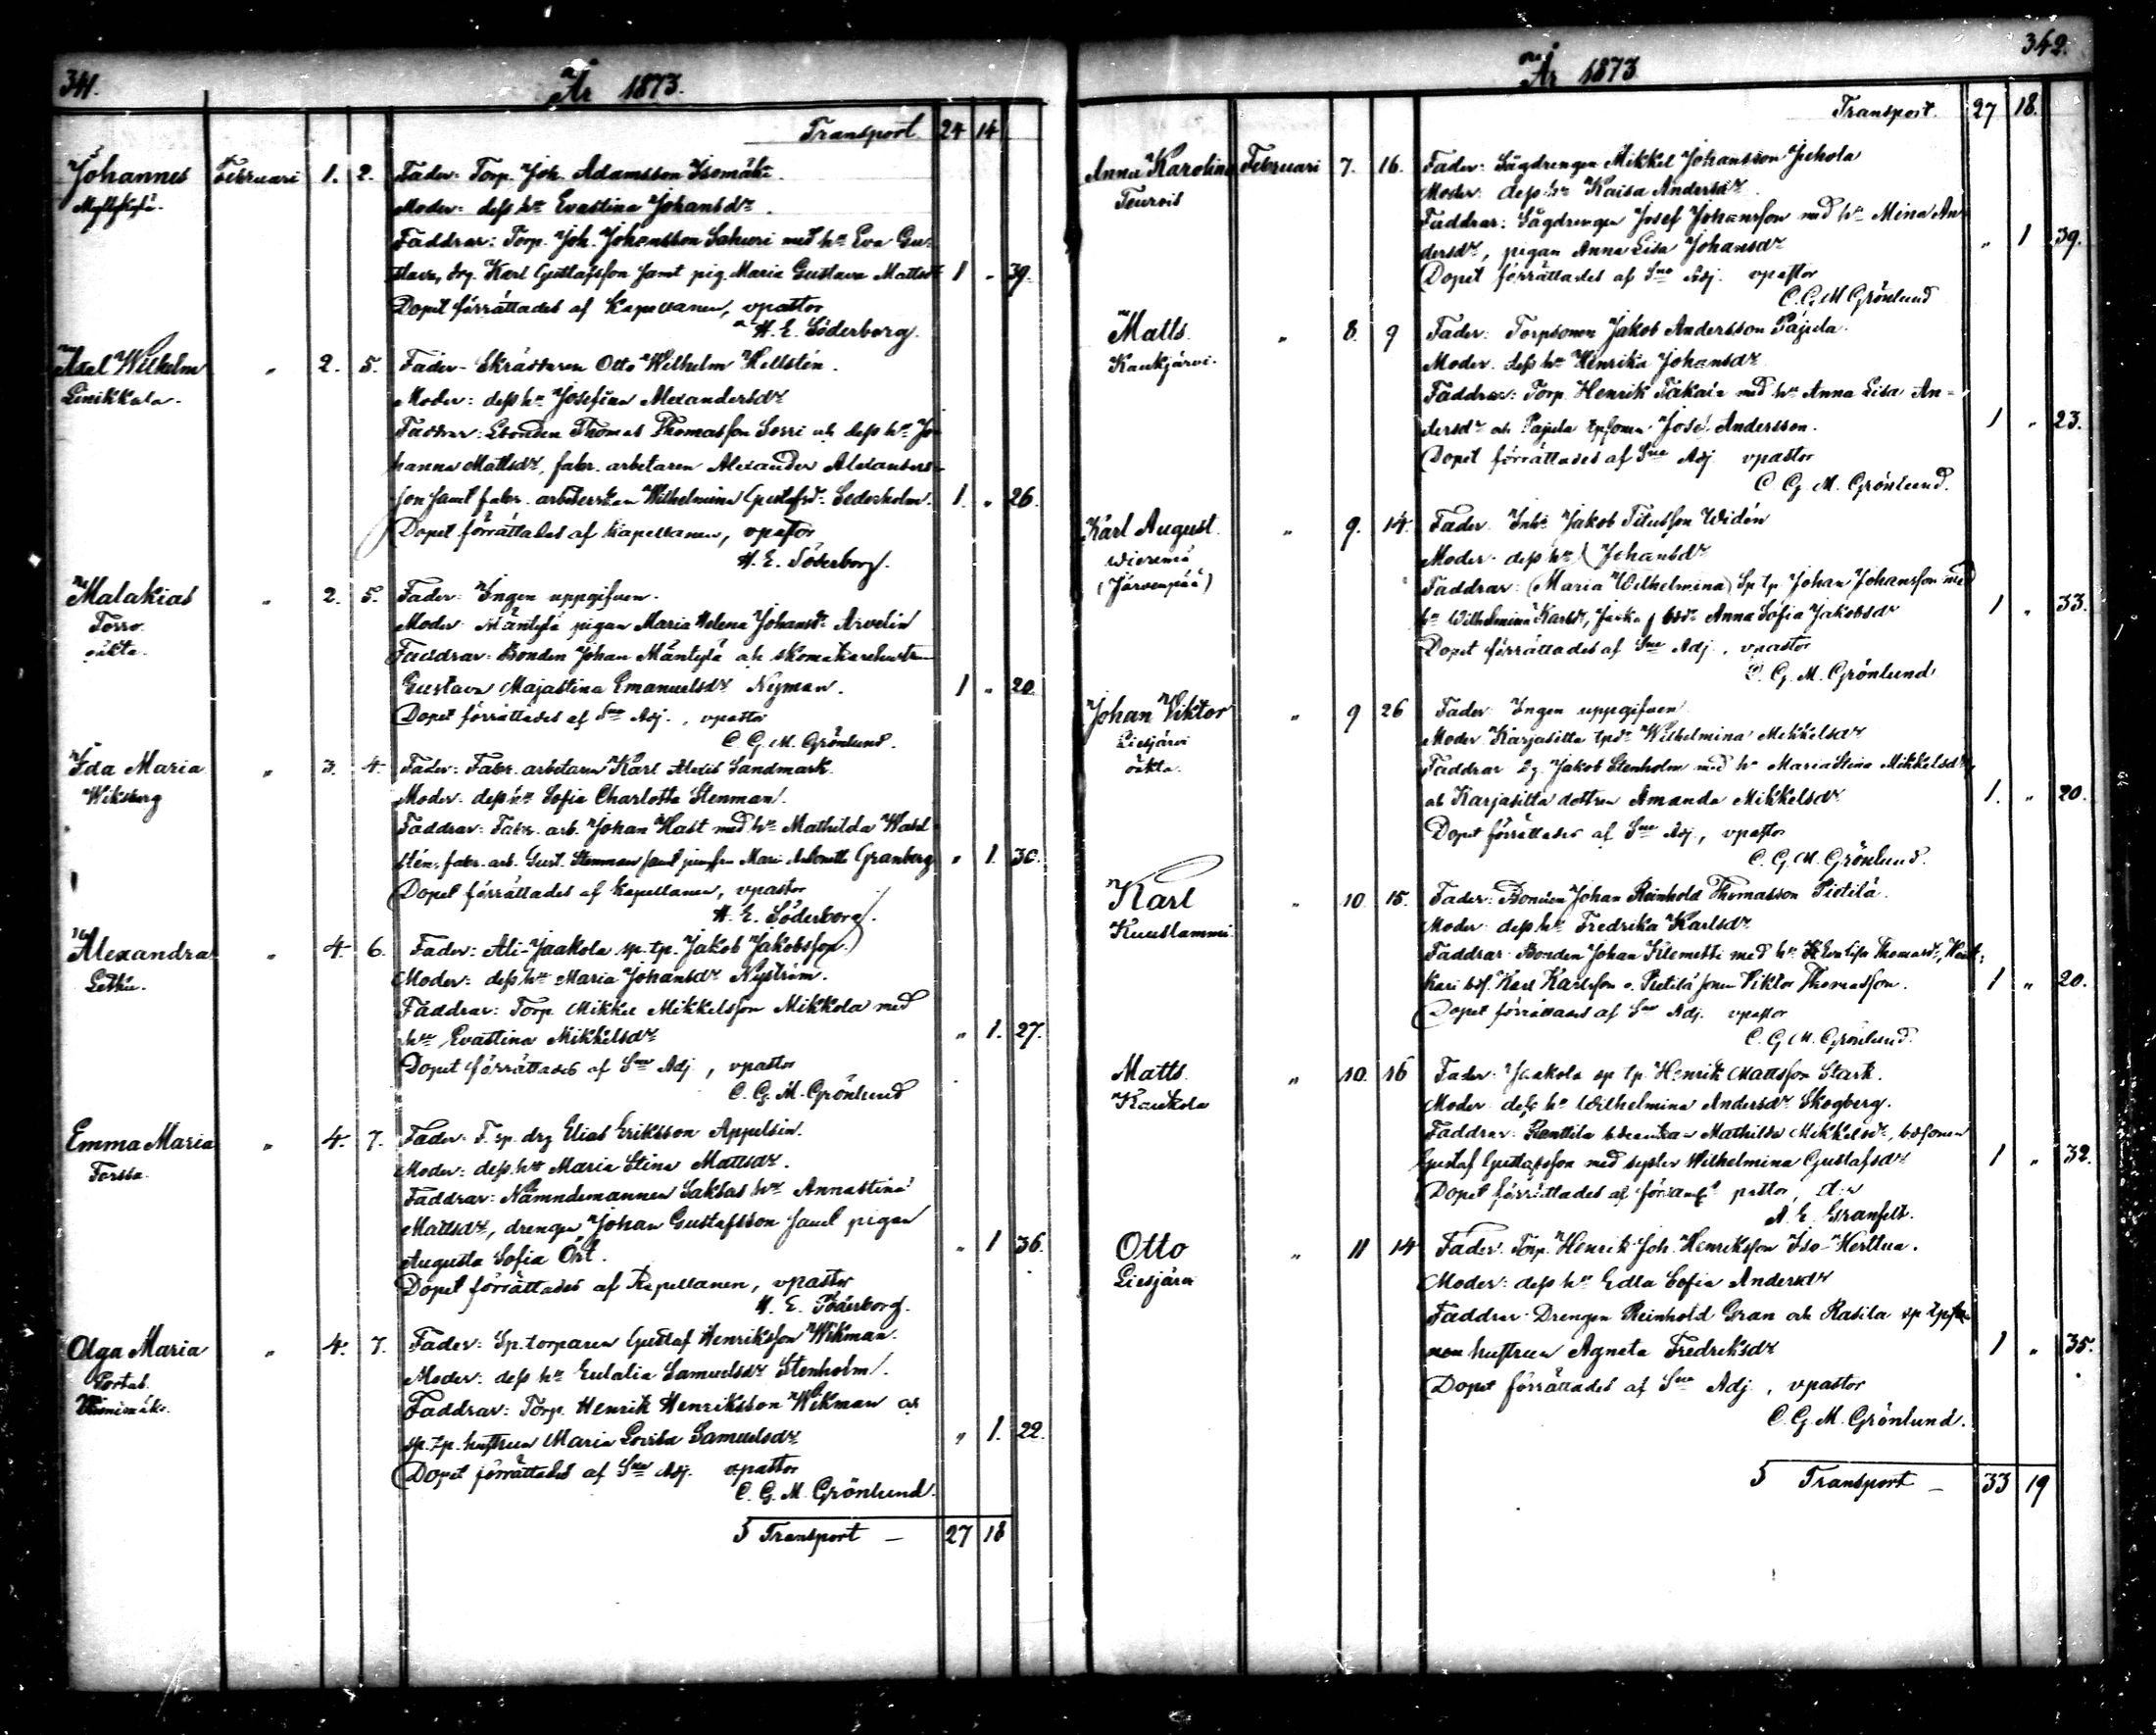 341.
År 1873.
Transport 24 14
Johannes Februari 1. 2. Fader: Torp. Joh. Adamsson Isomäki.
Moder: dess hu Evastina Johansdr.
Faddrar: Torp. Joh. Johansson Sahuri med hu Eva Gu-
stava, drg. Karl Gustafsson samt pig. Maria Gustava Mattsdr 1 „ 39.
Dopet förrättades af Kapellanen, vpastor
H. E. Söderborg.
Axel Wilhelm „ 2. 5. Fader: Skräddaren Otto Wilhelm Hellstén.
Linikkala. Moder: dess hu Josefina Alexandersdr
Faddrar: Thomas Thomasson Sorri och dess hu Jo-
hanna Mattsdr, fabr. arbetaren Alexander Alexanders-
son samt fabr. arbeterskan Wilhelmina Gustafsdr Cederholm. 1. „ 26.
Dopet förrättades af Kapellanen, vpastor
H. E. Söderborg.
Malakias „ 2. 5. Fader: Ingen uppgifven.
Torro Moder: Mäntylä pigan Maria Helena Johansdr Arvelin
oäkta. Faddrar: Bonden Johan Mäntylä och skomakarehustrun
Gustava Majastina Emanuelsdr Nyman. 1 „ 20
Dopet förrättades af Sne Adj., vpastor
C. G. M. Grönlund.
Ida Maria „ 3. 4. Fader: Fabr. arbetaren Karl Alexis Sandmark.
Wiksberg Moder: dess hu Sofia Charlotta Stenman.
Faddrar: Fabr. arb. Johan Hast med hu Mathilda Wahl-
stén, fabr. arb. Gust. Stenman samt jungfru Maria Granberg „ 1. 30.
Dopet förrättades af Kapellanen, vpastor
H. E. Söderborg.
Alexandra „ 4. 6. Fader: Ali-Jaakola sp. tp. Jakob Jakobsson.
Lethu. Moder: dess hu Maria Johansdr Nyström.
Faddrar: Torp. Mikkel Mikkelsson Mikkola med
hu Evastina Mikkelsdr „ 1. 27.
Dopet förrättades af Sne Adj., vpastor
C. G. M. Grönlund
Emma Maria „ 4. 7. Fader: F. sp. drg Elias Eriksson Appelsin.
Forssa. Moder: dess hu Maria Stina Mattsdr.
Faddrar: Nämndemannen Saksas hu Annastina
Mattsdr, drengen Johan Gustafsson samt pigan
Augusta Sofia Ört. „ 1 36.
Dopet förrättades af Kapellanen, vpastor
H. E. Söderborg.
Olga Maria „ 4. 7. Fader: Sp. torparen Gustaf Henriksson Wikman.
Portas. Moder: dess hu Eulalia Samuelsdr Stenholm.
Faddrar: Torp. Henrik Henriksson Wikman och
sp. tp. hustrun Maria Lovisa Samuelsdr „ 1. 22.
Dopet förrättades af Sne Adj. vpastor
C. G. M. Grönlund.
Transport — 27 18
342.
År 1873
Transport. 27 18.
Anna Karolina Februari 7. 16. Fader: Sågdrengen Mikkel Johansson Juhola
Teurois Moder: dess hu Kaisa Andersdr
Faddrar: Sågdrengen Josef Johansson med hu Mina An-
dersdr, pigan Anna Lisa Johansdr „ 1 39.
Dopet förrättades af Sne Adj. vpastor
C. G. M. Grönlund
Matts „ 8. 9 Fader: Torpsonen Jakob Andersson Pajula.
Kaukjärvi. Moder: dess hu Henrika Johansdr
Faddrar: Torp. Henrik Takala med hu Anna Lisa An-
dersdr och Pajula tpsonen Josef Andersson. 1 „ 23.
Dopet förrättades af Sne Adj. vpastor
C. G. M. Grönlund.
Karl August. „ 9. 14. Fader: Inh. Jakob Titusson Widén
Wieremä Moder: dess hu Johansdr
(Järvenpää) Faddrar: (Maria Wilhelmina) Sp. tp. Johan Johansson med
hu Wilhelmina Karlsdr, bdr Anna Sofia Jakobsdr 1 „ 33.
Dopet förrättades af Sne Adj., vpastor
C. G. M. Grönlund
Johan Viktor „ 9 26 Fader: Ingen uppgifven
Liesjärvi Moder: Karjasilta tpdr Wilhelmina Mikkelsdr
oäkta. Faddrar: Jakob Stenholm med hu Maria Stina Mikkelsdr,
och Karjasilta dottren Amanda Mikkelsdr. 1. „ 20.
Dopet förrättades af Sne Adj., vpastor
C. G. M. Grönlund.
Karl „ 10 15. Fader: Bonden Johan Reinhold Thomasson Pietilä.
Kuuslammi. Moder: dess hu Fredrika Karlsdr
Faddrar: Bonden Johan Klemetti med hu Evalisa Thomasdr,
Karl Karlsson o. Pietilä sonen Viktor Thomasson. 1 „ 20.
Dopet förrättades af Sne Adj. vpastor
C. G. M. Grönlund.
Matts „ 10. 16 Fader: Jaakola sp. tp. Henrik Mattsson Stark.
Kaukola Moder: dess hu Wilhelmina Andersdr Skogberg.
Faddrar: Penttilä Mathilda Mikkelsdr, bdsonen
Gustaf Gustafsson med syster Wilhelmina Gustafsdr 1 „ 32.
Dopet förrättades af pastor,
A. E. Granfelt.
Otto „ 11 14 Fader: Torp. Henrik Joh. Henriksson Iso-Herttua.
Liesjärvi Moder: dess hu Edla Sofia Andersdr
Faddrar: Drengen Reinhold Gran och Rasila sp. tp
hustrun Agneta Fredriksdr 1 „ 35.
Dopet förrättades af Sne Adj., vpastor
C. G. M. Grönlund.
Transport — 33 19